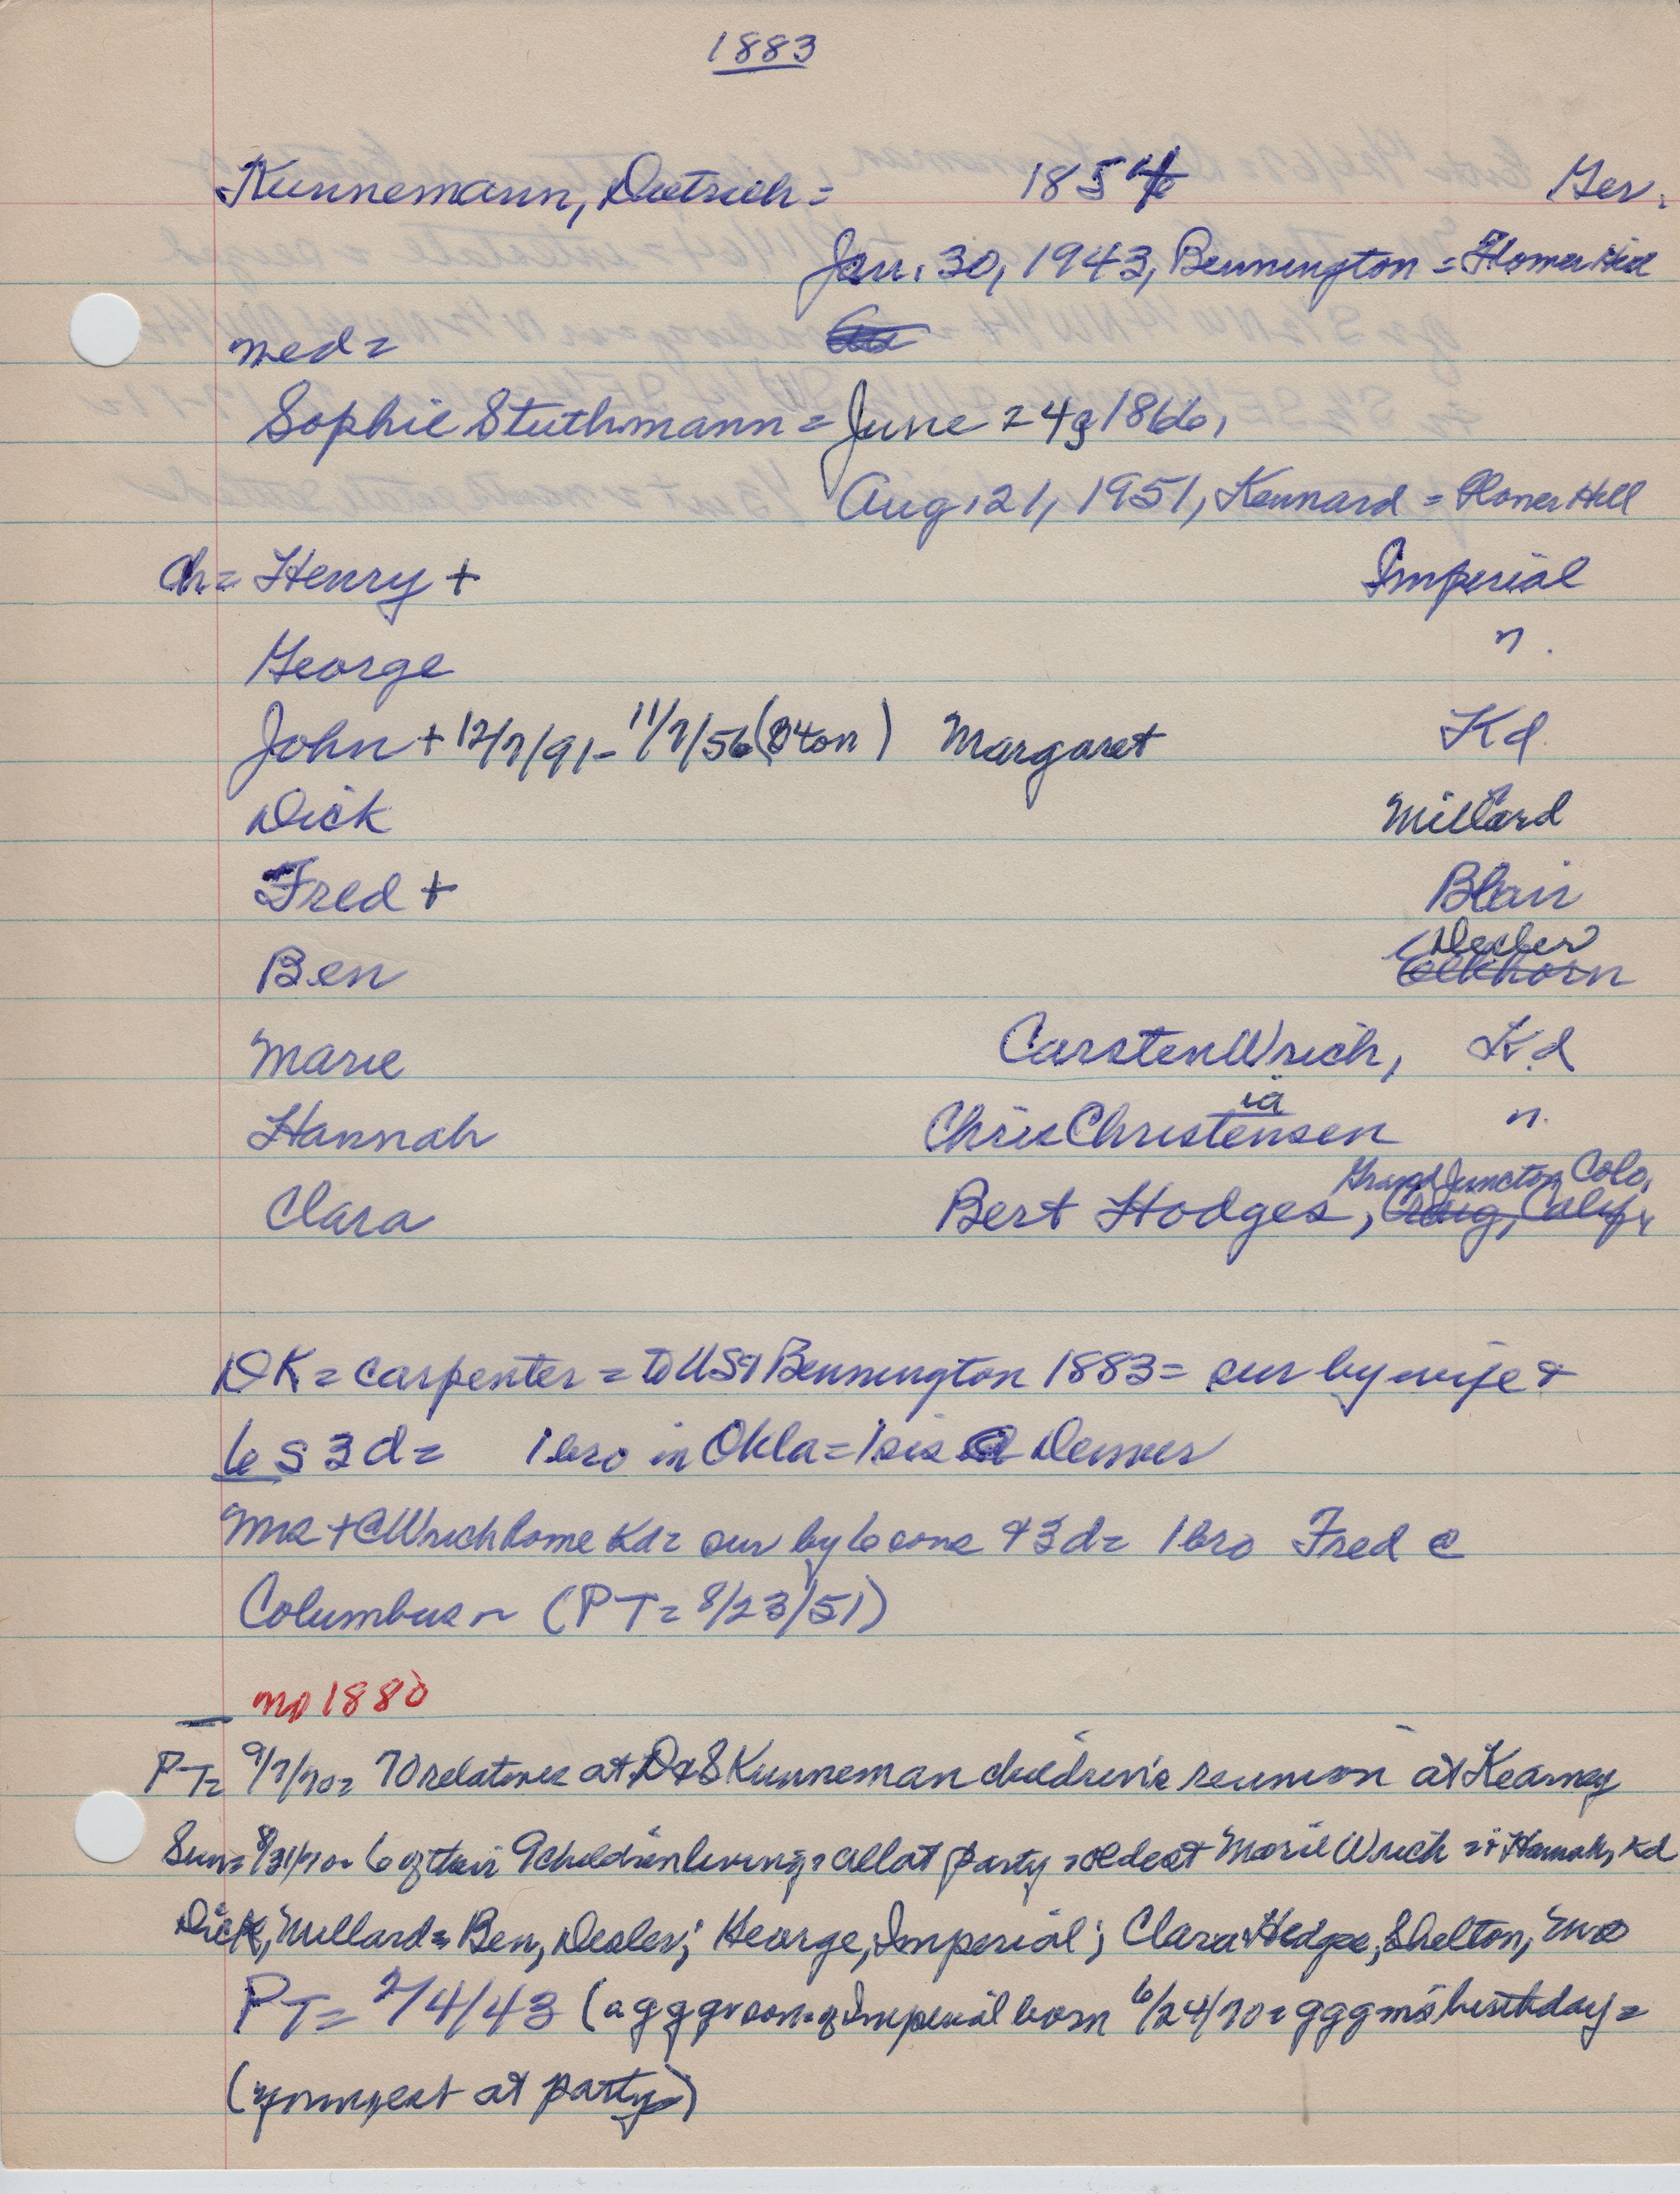 1883
Kunnemann, Dietrich = 1854 Ger.
Jan. 30, 1943, Bennington = Flower Hill
med =
Sophie Stuthmann = June 24, 1866,
Aug. 21, 1951, Kennard = Flower Hill
ch = Henry + Imperial
George " .
John + 12/7/91 - 11/7/56 ( ) Margaret Kd.
Dick Millard
Fred + Blair
Dexler
Ben Elkhorn
Marie Carsten Wrich, Kd
ia
Hannah Chris Christensen " .
Grand Junction Colo.
Clara Bert Hodges, Craig, Calif.
DK = carpenter = to US & Bennington 1883 = sur by wife &
6 s 3 d = 1 bro in Okla = 1 sis @ Denver
Mrs + C Wrich home Kd = sur by 6 sons & 3 d = 1 bro Fred @
Columbus ~ (PT = 8/23/51)
no 1880
PT = 9/7/70 = 70 relatives at D & S Kunneman children's reunion at Kearney
Sun = 8/31/70 = 6 of their 9 children living = all at party = oldest Marie Wrich = + Hannah, Kd
Dick, Millard = Ben, Dexler; George, Imperial; Clara Hedge, Shelton,
PT = 2/4/43 (a g g gr son of Imperial born 6/24/70 = gggma's birthday =
(youngest at party)